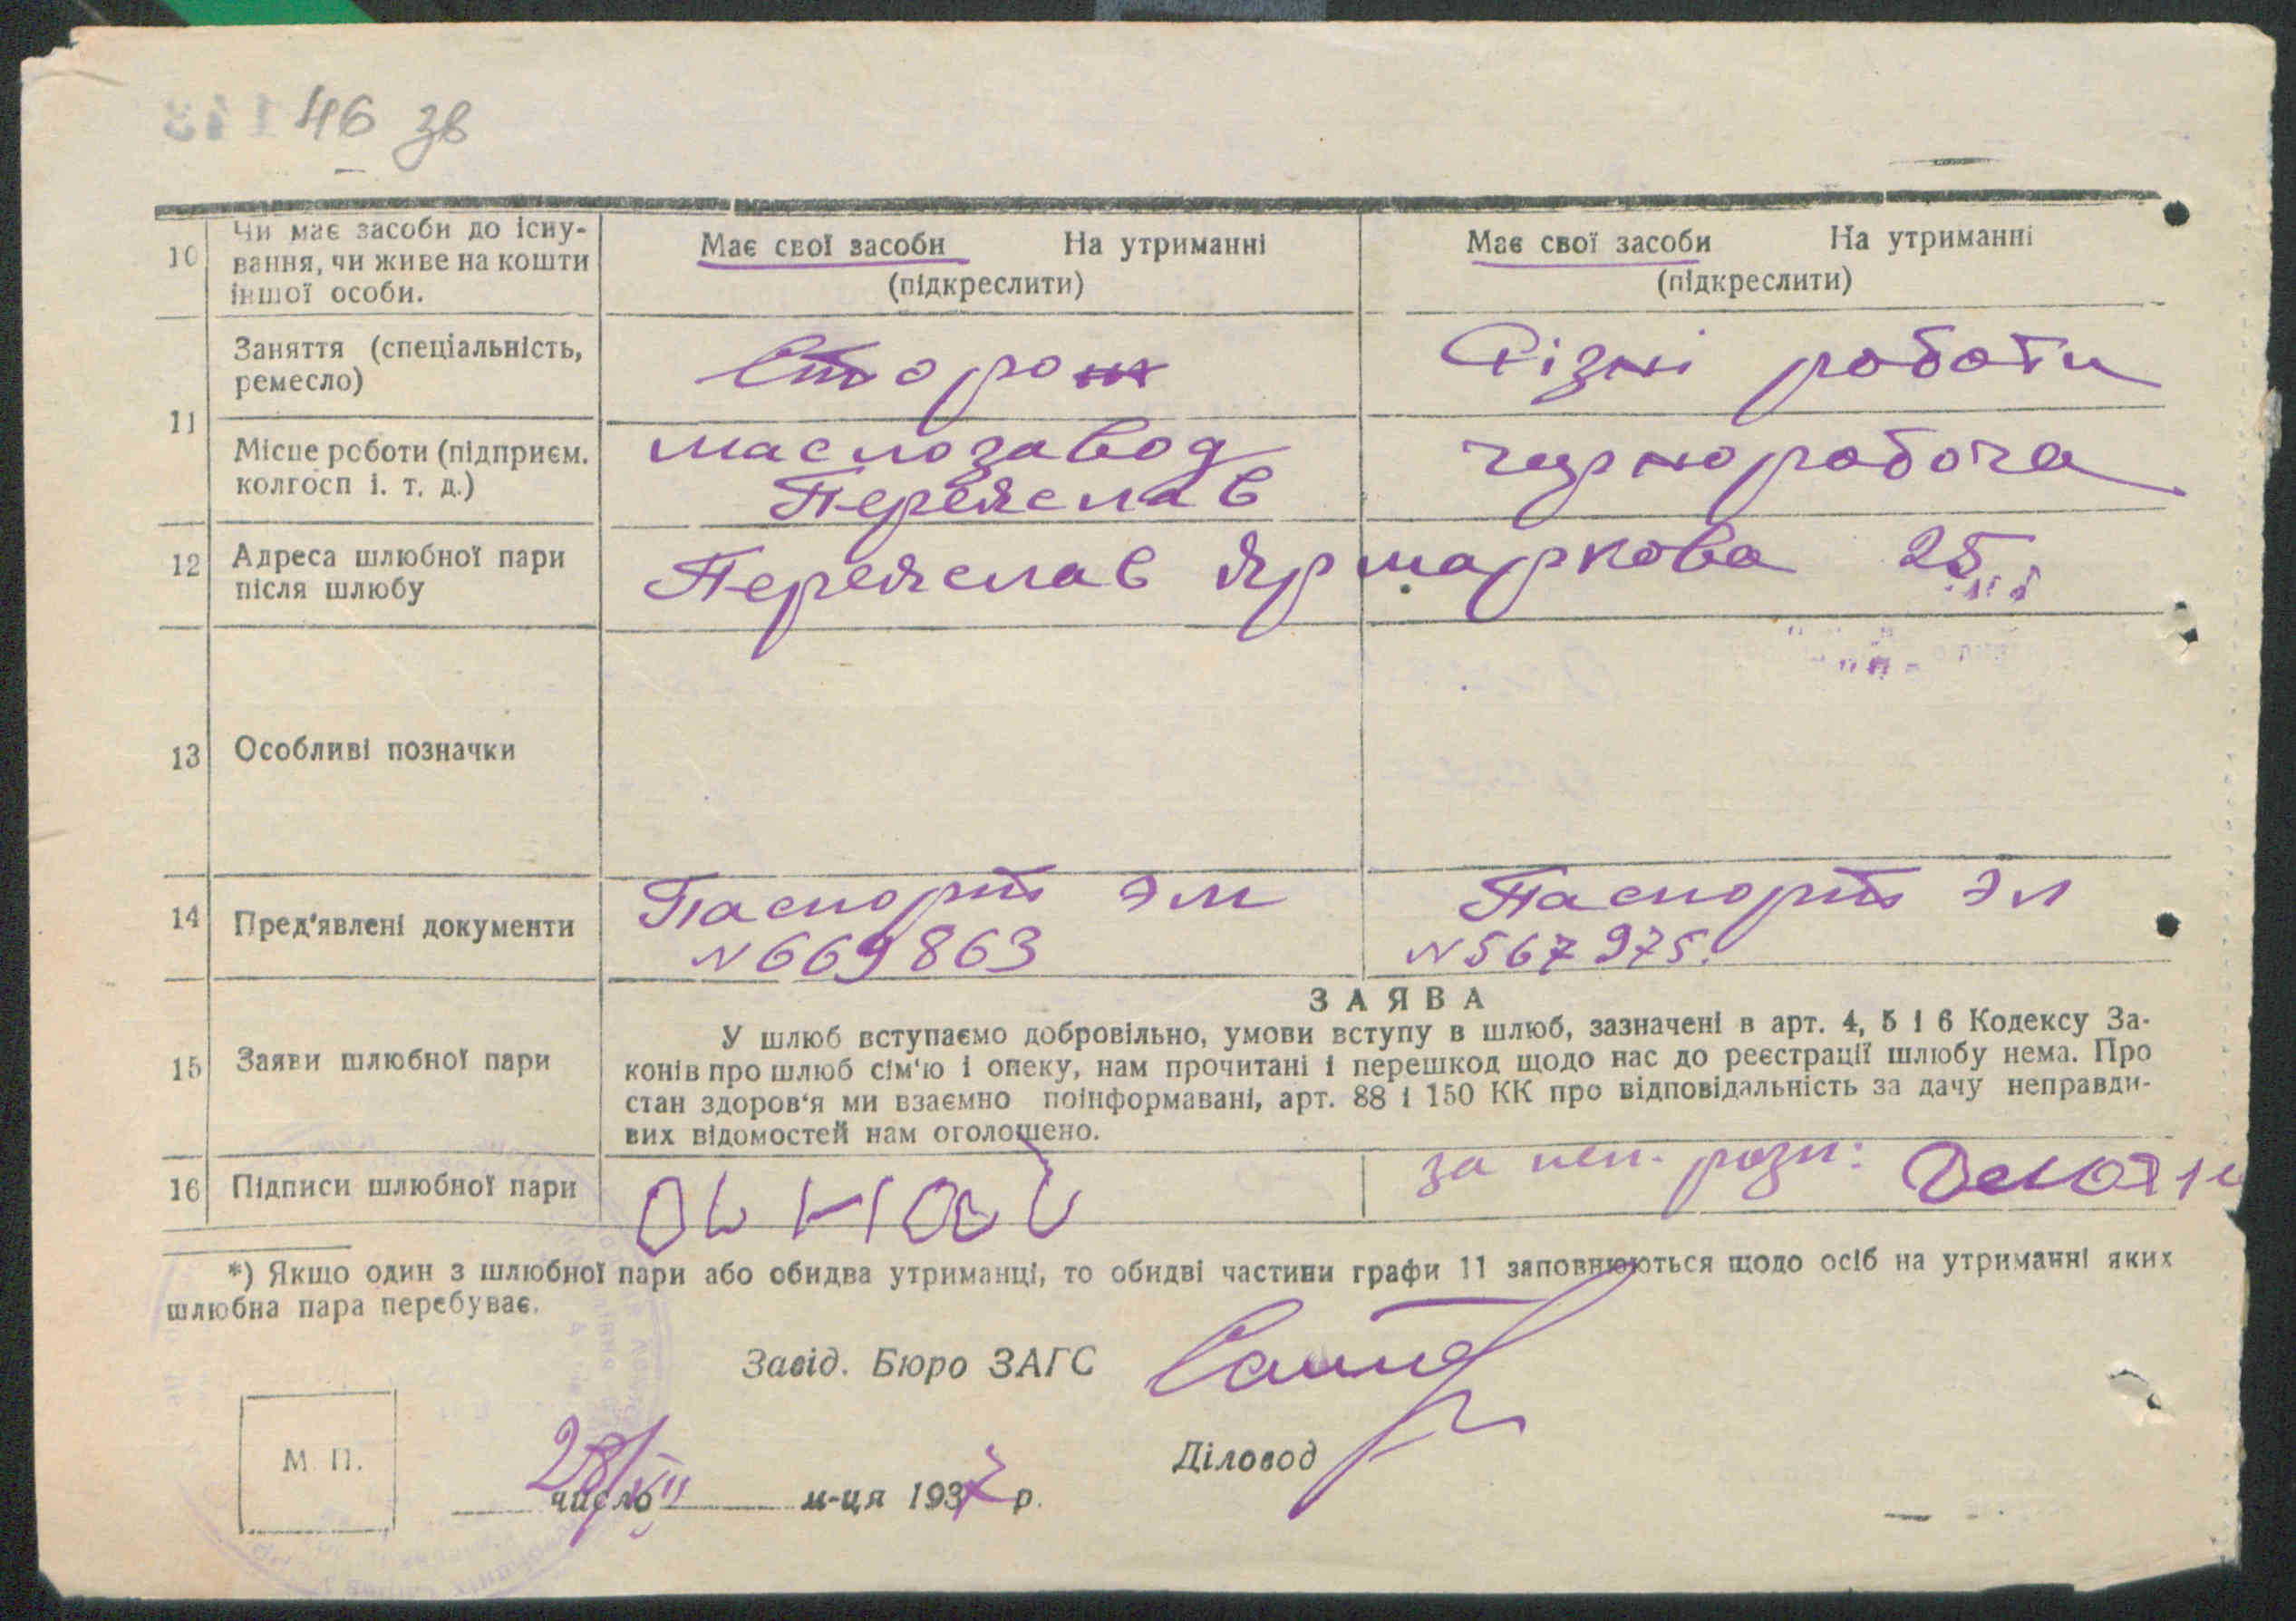 46 зв
10 Чи має засоби до існу-
вання, чи живе на кошти
іншої особи.
Має свої засоби На утриманні
(підкреслити)
Має свої засоби На утриманні
(підкреслити)
11 Заняття (спеціальність,
ремесло)
Сторож
Різні роботи
Місце роботи (підприєм.
колгосп і. т. д.)
маслозавод
Переяслав
чорноробоча
12 Адреса шлюбної пари
після шлюбу
Переяслав Ярмаркова 25
13 Особливі позначки
14 Пред'явлені документи
Паспорт ЭМ
N 669863
Паспорт ЭЛ
N 567975.
15 Заяви шлюбної пари
ЗАЯВА
У шлюб вступаємо добровільно, умови вступу в шлюб, зазначені в арт. 4, 5 і 6 Кодексу За-
конів про шлюб сім'ю і опеку, нам прочитані і перешкод щодо нас до реєстрації шлюбу нема. Про
стан здоров'я ми взаємно поінформавані, арт. 88 і 150 КК про відповідальність за дачу неправди-
вих відомостей нам оголошено.
16 Підписи шлюбної пари
за неп. розп:
*) Якщо один з шлюбної пари або обидва утриманці, то обидві частини графи 11 заповнюються щодо осіб на утриманні яких
шлюбна пара перебуває.
Завід. Бюро ЗАГС
М. П.
28/VII
число м-ця 1937 р.
Діловод